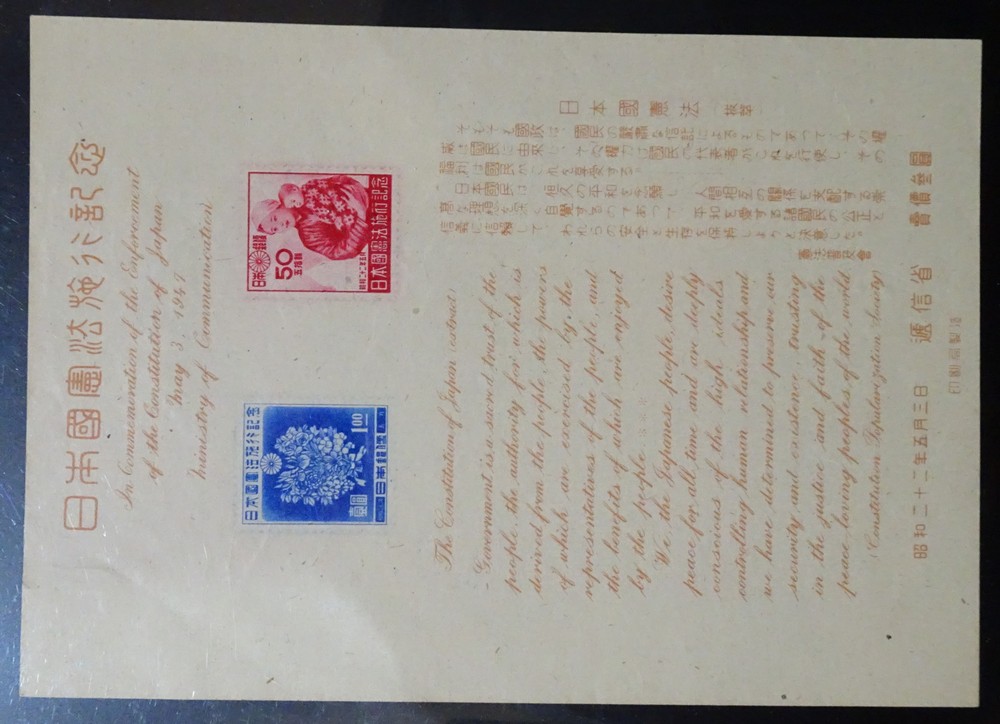 日本國憲法施行記念
In Commemoration of the Enforcement
of the Constitution of Japan
May 3, 1947
Ministry of Communication
日本國憲法施行記念
1.00
壹圓
日本郵便
日本國憲法施行記念
50
五拾錢
日本郵便
The Constitution of Japan (extract)
Government is a sacred trust of the
people, the authority for which is
derived from the people, the powers
of which are exercised by the
representatives of the people, and
the benefits of which are enjoyed
by the people.
We, the Japanese people, desire
peace for all time and are deeply
conscious of the high ideals
controlling human relationship, and
we have determined to preserve our
security and existence, trusting
in the justice and faith of the
peace-loving peoples of the world.
(Constitution Popularization Society)
日本國憲法 拔萃
そもそも國政は、國民の嚴肅な信託によるものであつて、その權
威は國民に由來し、その權力は國民の代表者がこれを行使し、その
福利は國民がこれを享受する。
日本國民は、恒久の平和を念願し、人間相互の關係を支配する崇
高な理想を深く自覺するのであつて、平和を愛する諸國民の公正と
信義に信賴して、われらの安全と生存を保持しようと決意した。
憲法普及會
昭和二十二年五月三日 遞信省 賣價參圓
印刷局製造